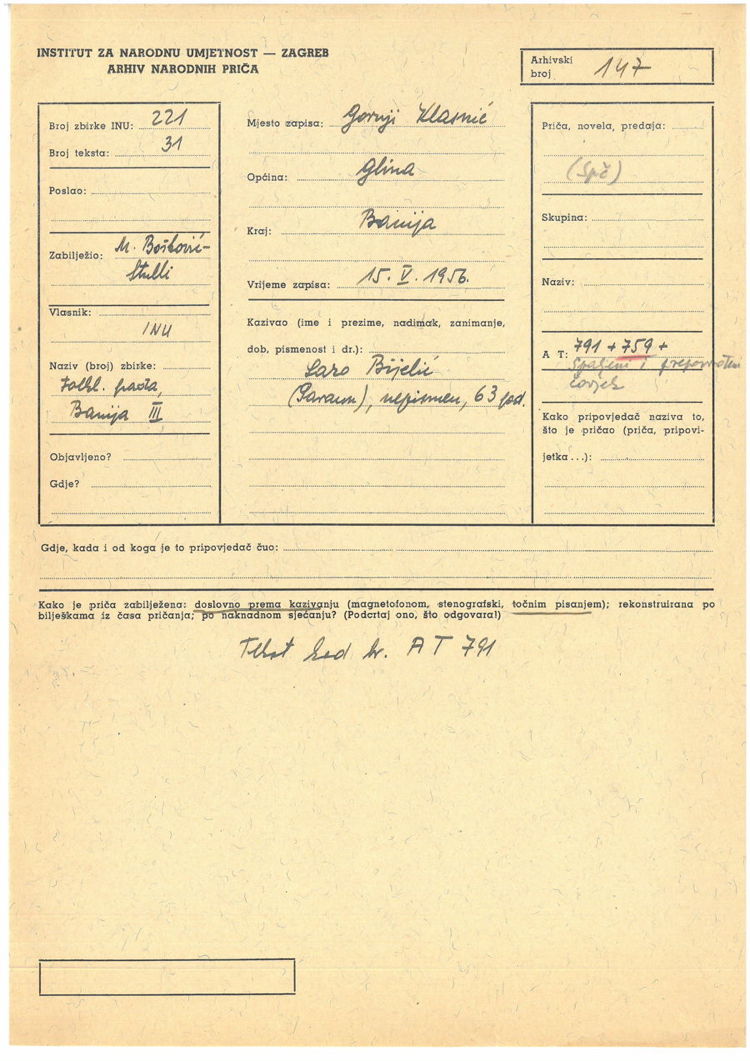 INSTITUT ZA NARODNU UMJETNOST — ZAGREB
ARHIV NARODNIH PRIČA
Arhivski
broj 147
Broj zbirke INU: 221
Broj teksta: 31
Poslao:
Zabilježio: M. Bošković-
Stulli
Vlasnik:
INU
Naziv (broj) zbirke:
Folkl. građa,
Banija III
Objavljeno?
Gdje?
Mjesto zapisa: Gornji Klasnić
Općina: Glina
Kraj: Banija
Vrijeme zapisa: 15. V. 1956.
Kazivao (ime i prezime, nadimak, zanimanje,
dob, pismenost i dr.):
Lazo Bijelić
nepismen, 63 god.
Priča, novela, predaja:
(Spč)
Skupina:
Naziv:
A T: 791 + 759 +
Spaljeni i preporođeni
čovjek
Kako pripovjedač naziva to,
što je pričao (priča, pripovi-
jetka...):
Gdje, kada i od koga je to pripovjedač čuo:
Kako je priča zabilježena: doslovno prema kazivanju (magnetofonom, stenografski, točnim pisanjem); rekonstruirana po
bilješkama iz časa pričanja; po naknadnom sjećanju? (Podcrtaj ono, što odgovara!)
Tekst kod br. AT 791